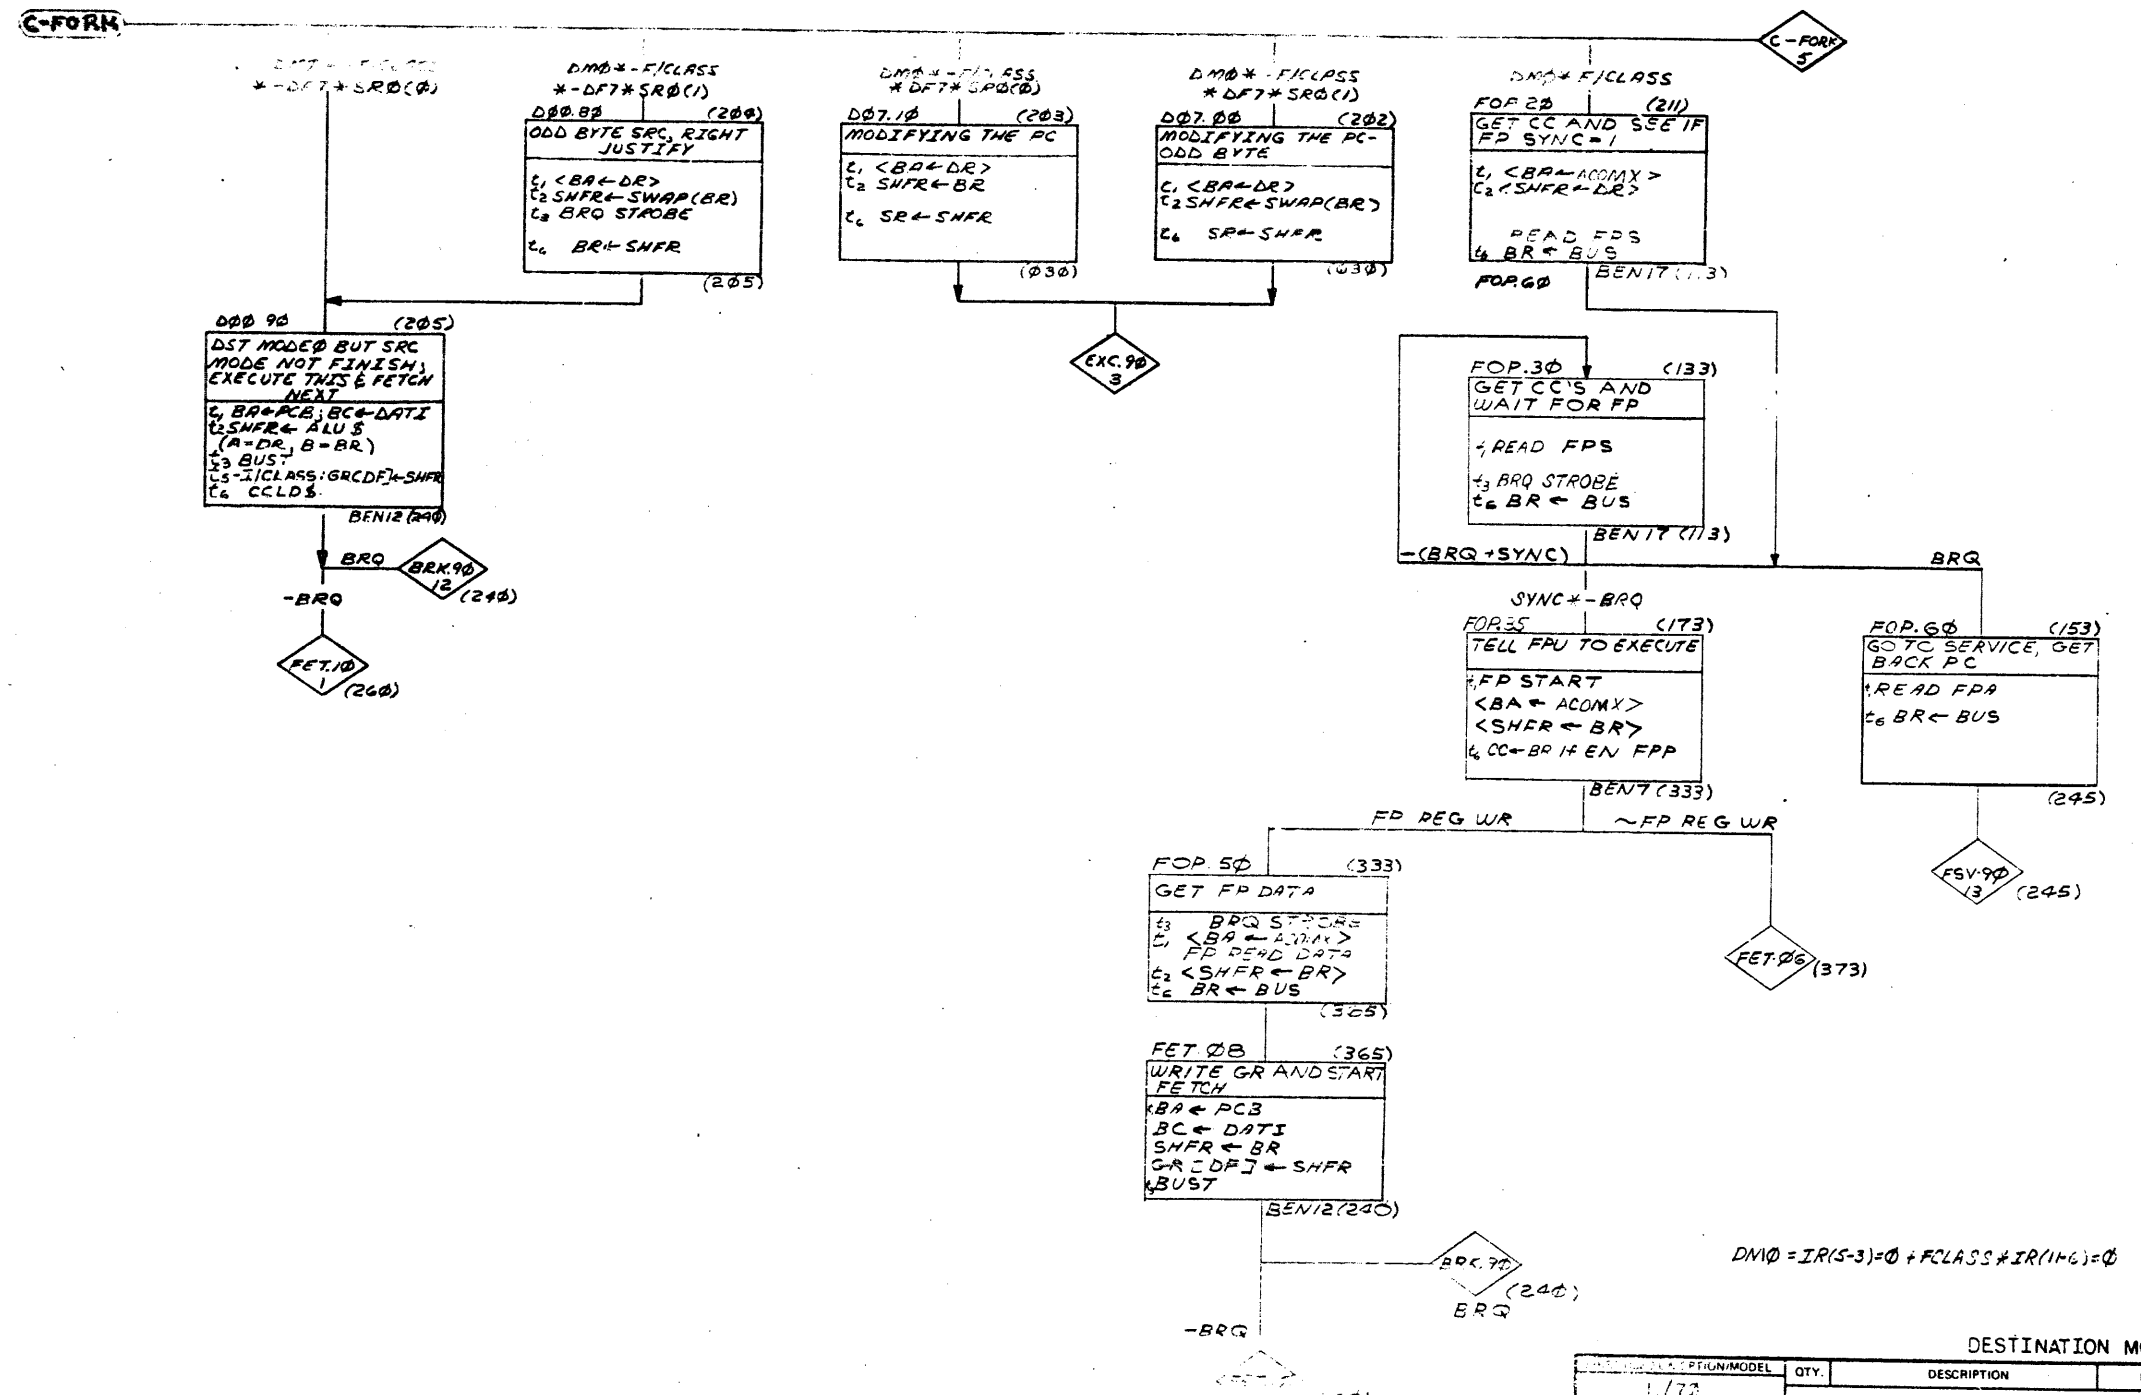 C-FORK
C-FORK
5
*-DF7*SRØ(Ø)
DMØ*-F/CLASS
*-DF7*SRØ(1)
DØØ.8Ø
ODD BYTE SRC, RIGHT
JUSTIFY
t1 <BA←DR>
t2 SHFR←SWAP(BR)
t3 BRQ STROBE
t6 BR←SHFR
(2Ø5)
DMØ*-F/CLASS
*DF7*SRØ(Ø)
DØ7.1Ø (2Ø3)
MODIFYING THE PC
t1 <BA←DR>
t2 SHFR←BR
t6 SR←SHFR
(Ø3Ø)
DMØ*-F/CLASS
*DF7*SRØ(1)
DØ7.ØØ (2Ø2)
MODIFYING THE PC-
ODD BYTE
t1 <BA←DR>
t2 SHFR←SWAP(BR)
t6 SR←SHFR
(Ø3Ø)
EXC.9Ø
3
DMØ*F/CLASS
FOP.2Ø (211)
GET CC AND SEE IF
FP SYNC=1
t1 <BA←ACOMX>
t2 <SHFR←DR>
READ FPS
t6 BR←BUS
BEN17 (113)
FOP.6Ø
DØØ.9Ø (2Ø5)
DST MODEØ BUT SRC
MODE NOT FINISH;
EXECUTE THIS & FETCH
NEXT
t1 BA←PCB; BC←DATI
t2 SHFR←ALU $
(A=DR, B=BR)
t3 BUST
t5 -I/CLASS:GR[DF]←SHFR
t6 CCLD$
BEN12 (24Ø)
BRQ
BRK.9Ø
12
(24Ø)
-BRQ
FET.1Ø
1
(26Ø)
FOP.3Ø (133)
GET CC'S AND
WAIT FOR FP
t1 READ FPS
t3 BRQ STROBE
t6 BR←BUS
BEN17 (113)
-(BRQ+SYNC)
BRQ
SYNC*-BRQ
FOP.35 (173)
TELL FPU TO EXECUTE
t1 FP START
<BA←ACOMX>
<SHFR←BR>
t6 CC←BR if EN FPP
BEN7 (333)
FOP.6Ø (153)
GO TO SERVICE, GET
BACK PC
t1 READ FPA
t6 BR←BUS
(245)
FSV.9Ø
13
(245)
FP REG WR
~FP REG WR
FOP.5Ø (333)
GET FP DATA
t3 BRQ STROBE
t1 <BA←ACOMX>
FP READ DATA
t2 <SHFR←BR>
t6 BR←BUS
(365)
FET.Ø6
(373)
FET.ØB (365)
WRITE GR AND START
FETCH
t1 BA←PCB
BC←DATI
SHFR←BR
GR[DF]←SHFR
BUST
BEN12(240)
BRK.9Ø
(24Ø)
BRQ
-BRQ
DMØ=IR(5-3)=Ø+FCLASS*IR(11-6)=Ø
DESTINATION M
QTY.
DESCRIPTION